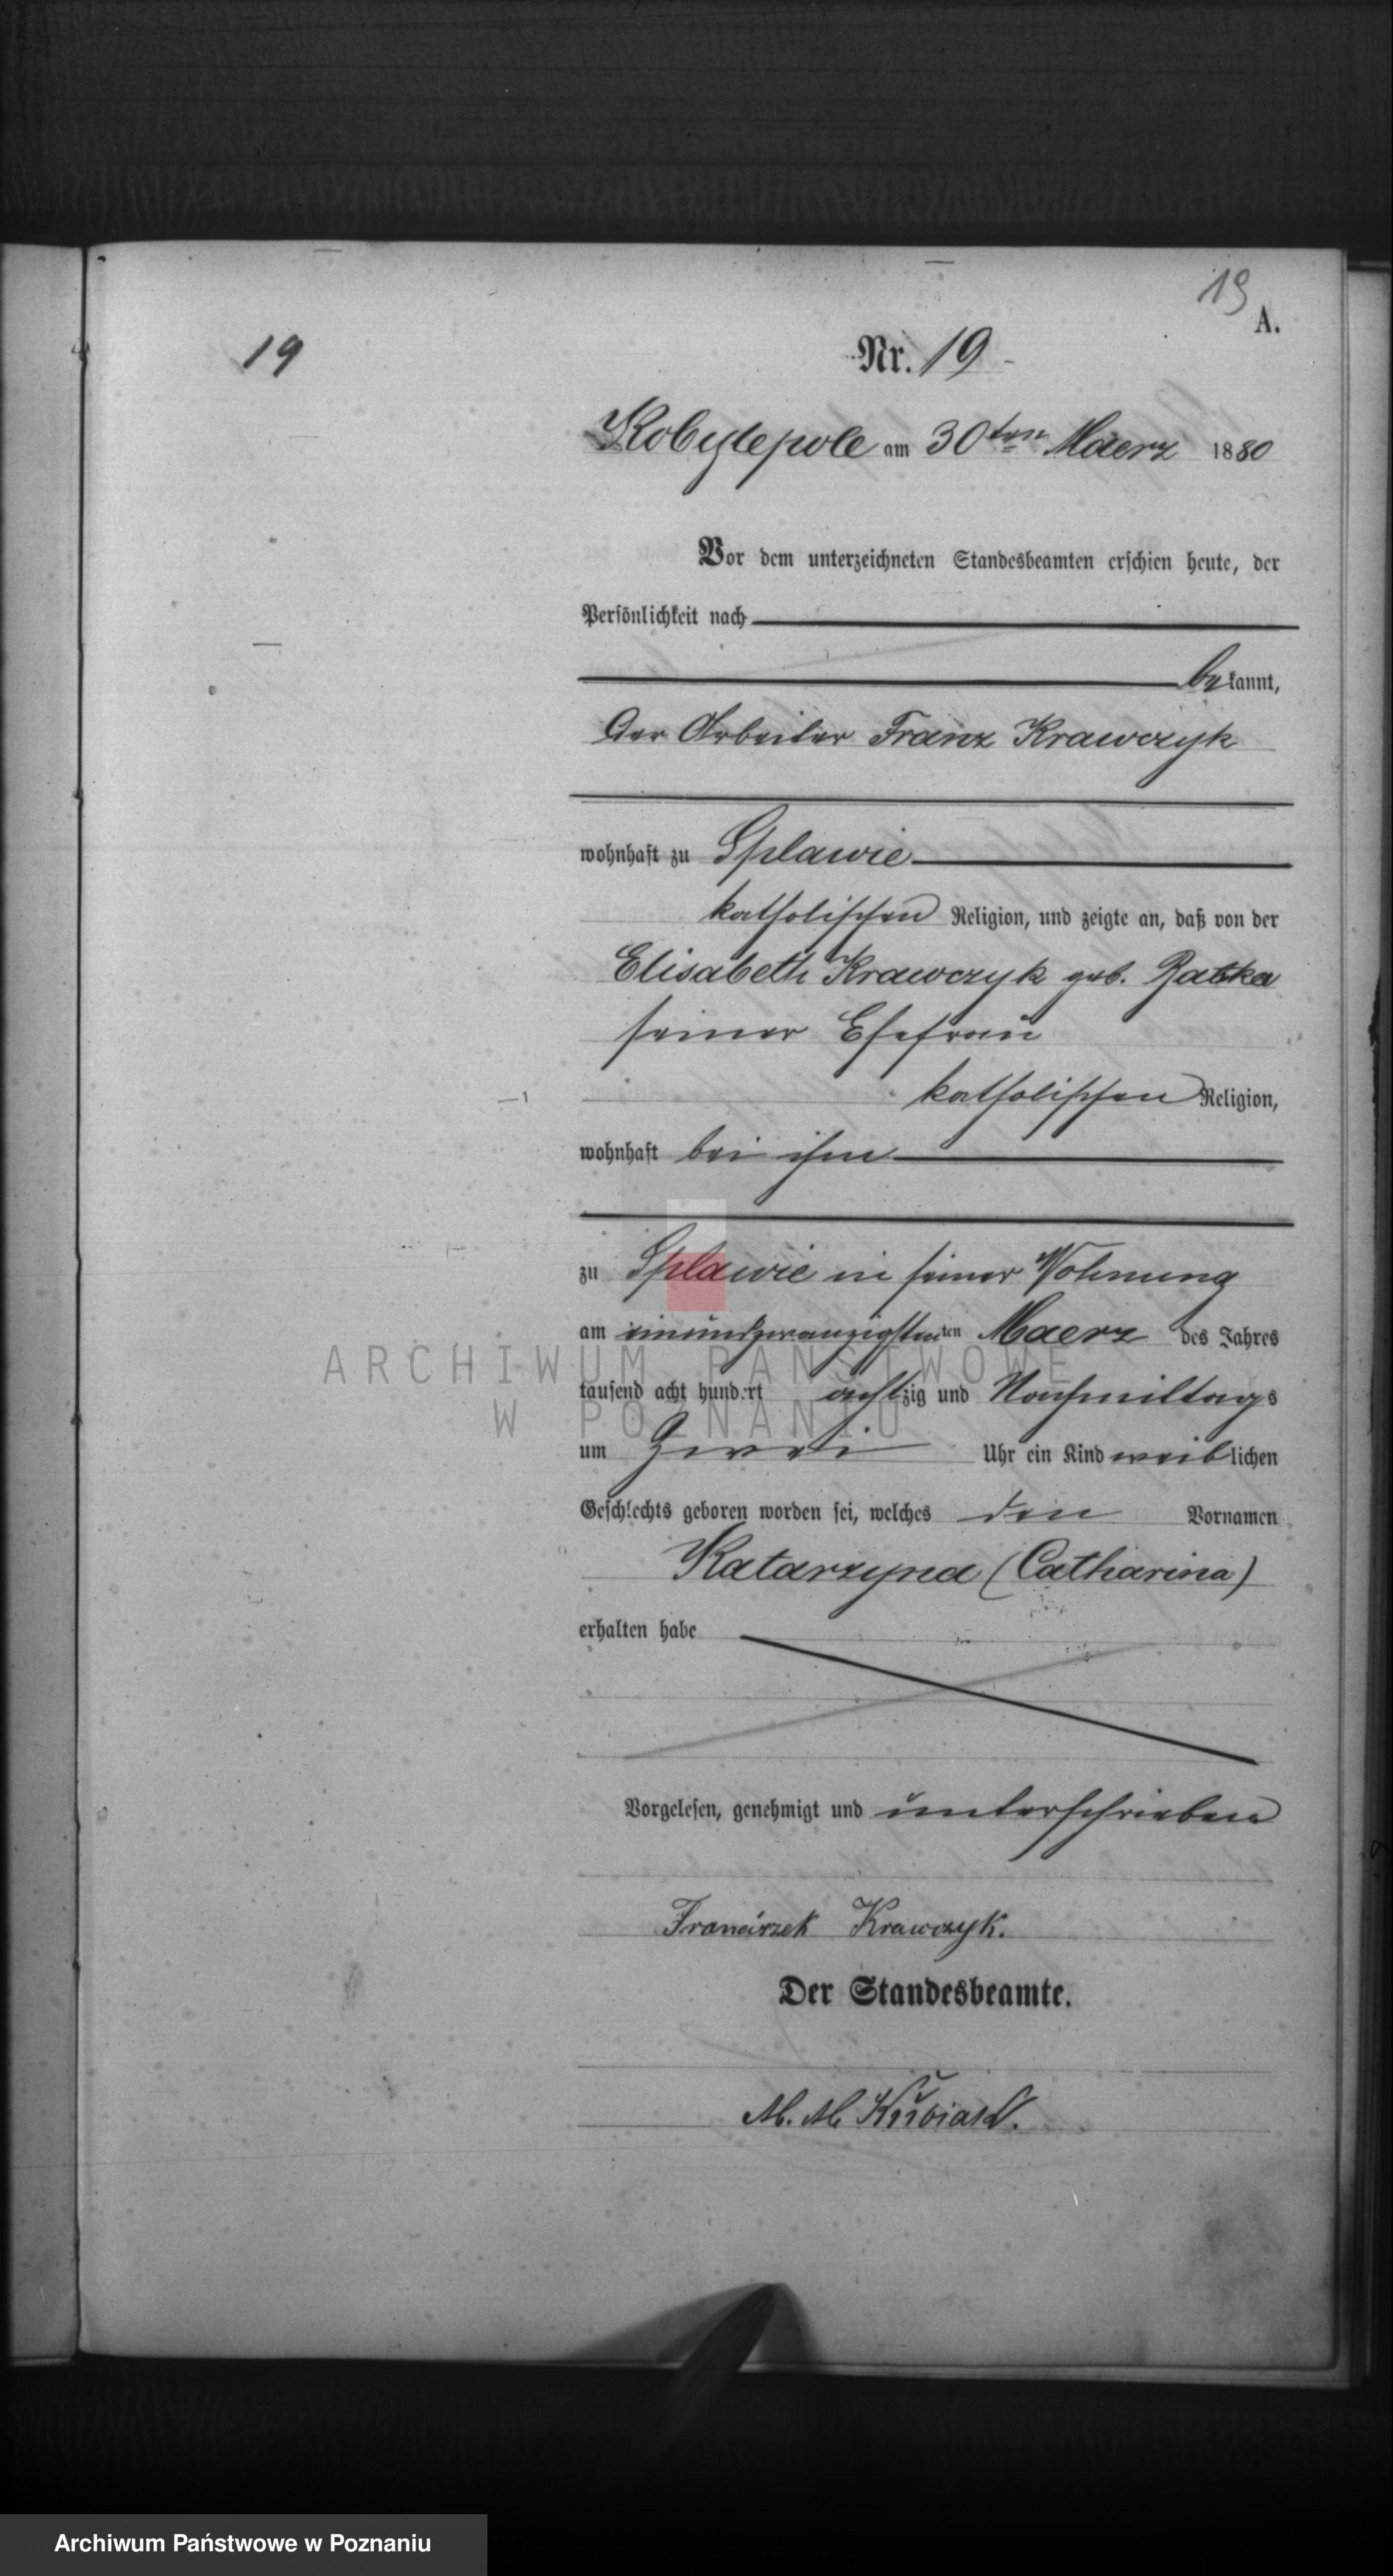 19
A.
19
Nr. 19
Kobylepole am 30ten Maerz 1880
Vor dem unterzeichneten Standesbeamten erschien heute, der
Persönlichkeit nach
bekannt,
der Arbeiter Franz Krawczyk
wohnhaft zu Splawie
katholischen Religion, und zeigte an, daß von der
Elisabeth Krawczyk geb. Ratka
seiner Ehefrau
katholischen Religion,
wohnhaft bei ihm
zu Splawie in seiner Wohnung
am einundzwanzigsten ten Maerz des Jahres
tausend acht hundert achtzig und Nachmittags
um zwei Uhr ein Kind weiblichen
Geschlechts geboren worden sei, welches den Vornamen
Katarzyna (Catharina)
erhalten habe
Vorgelesen, genehmigt und unterschrieben
Franciszek Krawczyk.
Der Standesbeamte.
M. M. Kubiak.
ARCHIWUM PAŃSTWOWE
W POZNANIU
Archiwum Państwowe w Poznaniu